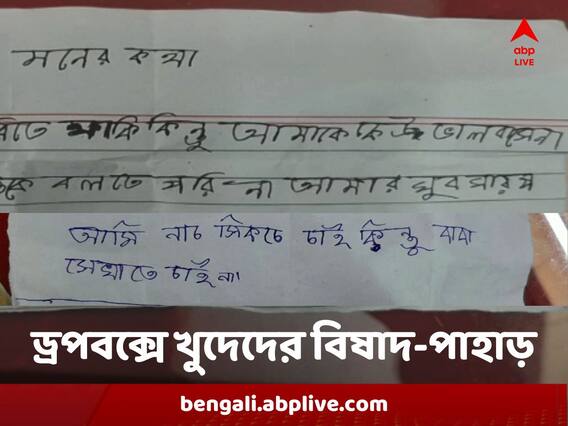 abp
LIVE
মনের কথা
কিন্তু আমাকে কেউ ভালবাসেনা
বলতে পারি-না আমার খুব খারাপ
আমি নাচ সিকতে চাই কিন্তু বাবা
সেখাতে চাই না।
ড্রপবক্সে খুদেদের বিষাদ-পাহাড়
bengali.abplive.com